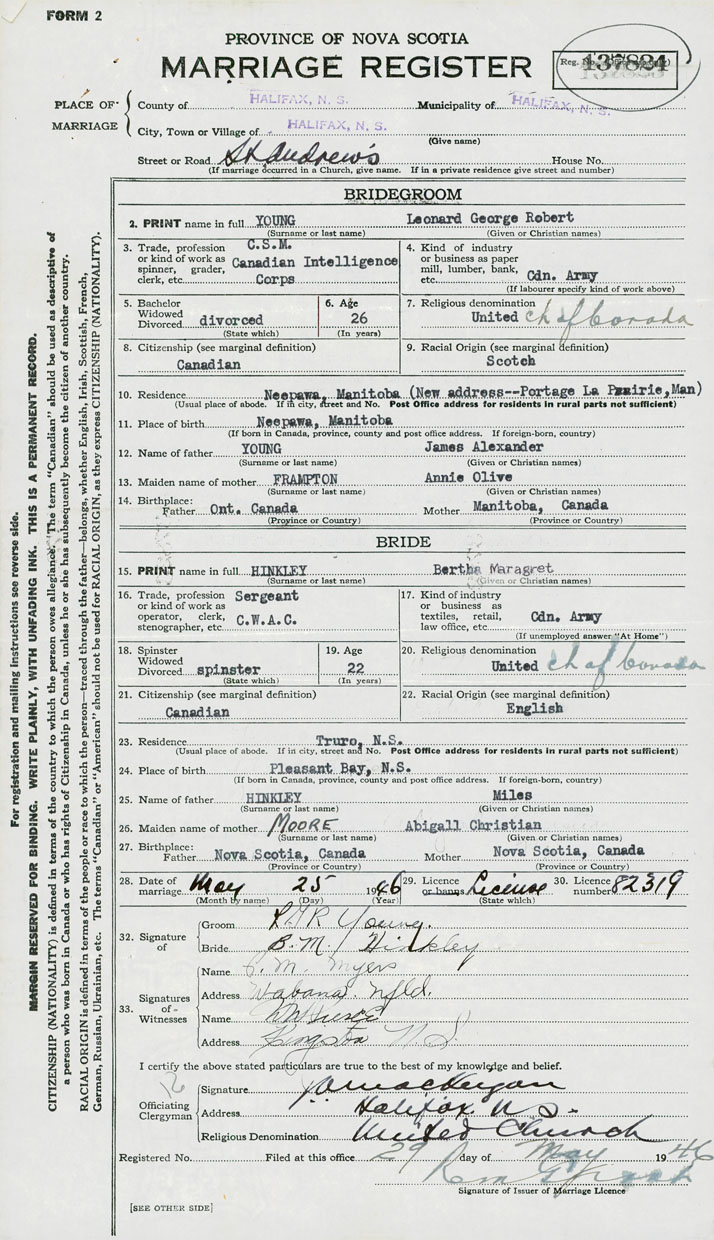 FORM 2
PROVINCE OF NOVA SCOTIA
MARRIAGE REGISTER
Reg. No. 437824
PLACE OF MARRIAGE
County of HALIFAX, N. S. Municipality of HALIFAX, N. S.
City, Town or Village of HALIFAX, N. S.
(Give name)
Street or Road St Andrew's House No.
(If marriage occurred in a Church, give name. If in a private residence give street and number)
BRIDEGROOM
2. PRINT name in full YOUNG Leonard George Robert
(Surname or last name) (Given or Christian names)
3. Trade, profession or kind of work as spinner, grader, clerk, etc. C.S.M. Canadian Intelligence Corps
4. Kind of industry or business as paper mill, lumber, bank, etc. Cdn. Army
(If labourer specify kind of work above)
5. Bachelor Widowed Divorced divorced
(State which)
6. Age 26
(In years)
7. Religious denomination United ch of Canada
8. Citizenship (see marginal definition) Canadian
9. Racial Origin (see marginal definition) Scotch
10. Residence Neepawa, Manitoba (New address--Portage La Prairie, Man)
(Usual place of abode. If in city, street and No. Post Office address for residents in rural parts not sufficient)
11. Place of birth Neepawa, Manitoba
(If born in Canada, province, county and post office address. If foreign-born, country)
12. Name of father YOUNG James Alexander
(Surname or last name) (Given or Christian names)
13. Maiden name of mother FRAMPTON Annie Olive
(Surname or last name) (Given or Christian names)
14. Birthplace: Father Ont. Canada Mother Manitoba, Canada
(Province or Country) (Province or Country)
BRIDE
15. PRINT name in full HINKLEY Bertha Maragret
(Surname or last name) (Given or Christian names)
16. Trade, profession or kind of work as operator, clerk, stenographer, etc. Sergeant C.W.A.C.
17. Kind of industry or business as textiles, retail, law office, etc. Cdn. Army
(If unemployed answer "At Home")
18. Spinster Widowed Divorced spinster
(State which)
19. Age 22
(In years)
20. Religious denomination United ch of Canada
21. Citizenship (see marginal definition) Canadian
22. Racial Origin (see marginal definition) English
23. Residence Truro, N.S.
(Usual place of abode. If in city, street and No. Post Office address for residents in rural parts not sufficient)
24. Place of birth Pleasant Bay, N.S.
(If born in Canada, province, county and post office address. If foreign-born, country)
25. Name of father HINKLEY Miles
(Surname or last name) (Given or Christian names)
26. Maiden name of mother MOORE Abigall Christian
(Surname or last name) (Given or Christian names)
27. Birthplace: Father Nova Scotia, Canada Mother Nova Scotia, Canada
(Province or Country) (Province or Country)
28. Date of marriage May 25 1946 29. Licence or banns License 30. Licence number 82319
(Month by name) (Day) (Year) (State which)
32. Signature of
Groom L.G.R Young.
Bride B.M. Hinkley
33. Signatures of Witnesses
Name M. Myers
Address Wabana. Nfld.
Name
Address Kingston N S
I certify the above stated particulars are true to the best of my knowledge and belief.
Officiating Clergyman
Signature
Address Halifax N S.
Religious Denomination United Church
Registered No. Filed at this office 29 day of May 1946
Signature of Issuer of Marriage Licence
[SEE OTHER SIDE]
For registration and mailing instructions see reverse side.
MARGIN RESERVED FOR BINDING. WRITE PLAINLY, WITH UNFADING INK. THIS IS A PERMANENT RECORD.
CITIZENSHIP (NATIONALITY) is defined in terms of the country to which the person owes allegiance. The term "Canadian" should be used as descriptive of
a person who was born in Canada or who has rights of Citizenship in Canada, unless he or she has subsequently become the citizen of another country.
RACIAL ORIGIN is defined in terms of the people or race to which the person—traced through the father—belongs, whether English, Irish, Scottish, French,
German, Russian, Ukrainian, etc. The terms "Canadian" or "American" should not be used for RACIAL ORIGIN, as they express CITIZENSHIP (NATIONALITY).